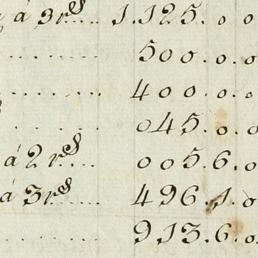 á 3 rˢ.... 1.125. o o
.... 500. o. o
.... 400. o. o
.... 045. o. o
á 2 rˢ.... 005. 6. o
á 3 rˢ.... 496. 1. o
.... 913. 6. o